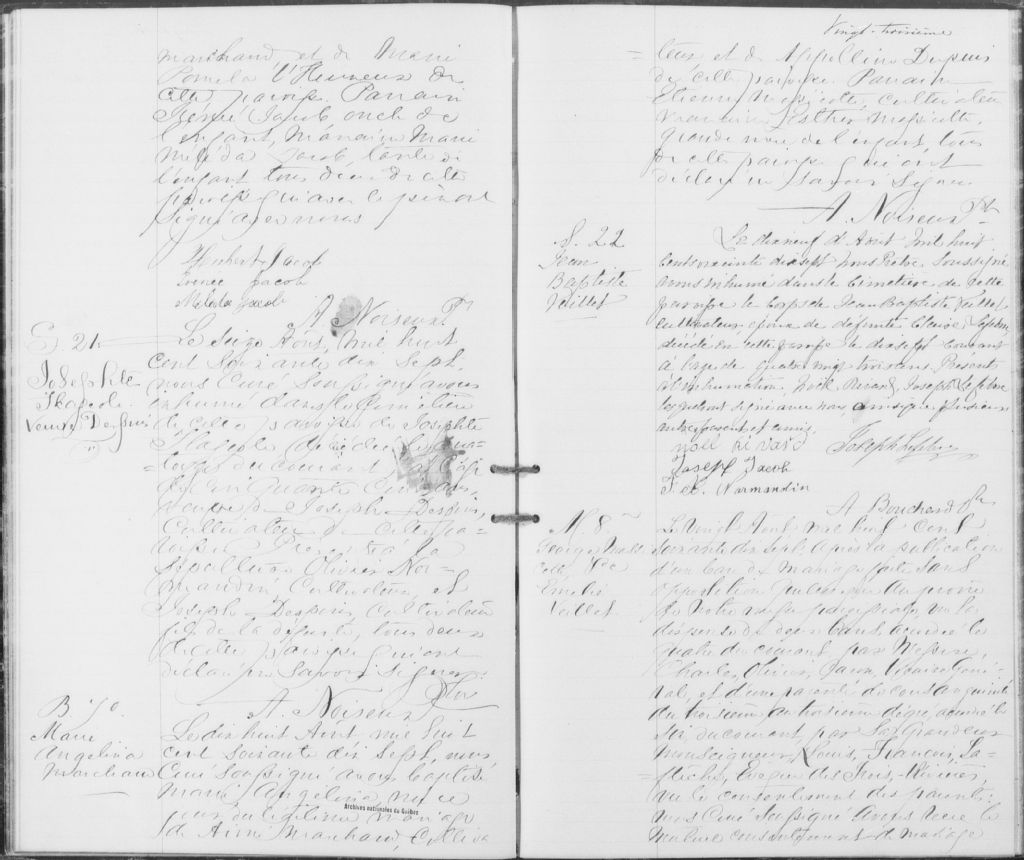 marchand et de Marie
Pomela L'Heureux de
cette paroisse. Parrain
Jacob, oncle de
l'enfant, Marraine Marie
Mélida Jacob, tante de
l'enfant tous deux de cette
paroisse qui avec le père ont
signé avec nous
Hubert Jacob
Irénée Jacob
Melida Jacob
A. Noiseux Ptr
S 21
Josephte
Veuve Despuis
Le seize Aout, mil huit
cent soixante dix sept,
nous Curé soussigné avons
inhumé dans le Cimetière
de cette paroisse Josephte
décédée
du courant
cinquante
Joseph Despuis,
Cultivateur de cette pa-
roisse Présents à la
Olivier Nor-
mandin, Cultivateur, et
Joseph Despuis, cultivateur
fils de la défunte, tous deux
de cette paroisse qui ont
déclaré ne savoir signer
A. Noiseux Ptr
B 70.
Marie
Angelina
Marchand
Le dix huit Aout mil huit
cent soixante dix sept, nous
Curé soussigné avons baptisé
Marie Angelina née
du légitime mariage
de Aimé Marchand, Cultiva
Archives nationales du Québec
Vingt-troisième
= teur et de Despuis
de cette paroisse. Parrain
Etienne Massicotte, cultivateur
Marraine Esther Massicotte,
grande mère de l'enfant, tous
de cette paroisse qui ont
déclaré ne savoir signer
A. Noiseux Ptr
S. 22
Jean
Baptiste
Veillet
Le dix neuf d'Aout mil huit
cent soixante dix sept nous Prêtre soussigné
avons inhumé dans le Cimetière de cette
paroisse le corps de Jean Baptiste Veillet
cultivateur époux de défunte Lefebvre
décédé en cette paroisse le dix sept courant
à l'age de quatre vingt trois ans. Présents
à l'inhumation, Noël Rivard, Joseph Lefebvre
lesquels ont signé avec nous ainsi que plusieurs
autres parents et amis.
noël rivard Joseph Lefebvre
Joseph Jacob
Normandin
A Bouchard Ptr
M. 8
Georges Massi-
cotte, &
Emélie
Veillet
Le vingt Aout mil huit cent
soixante dix sept, après la publication
d'un ban de mariage faite sans
opposition au prône
de notre messe paroissiale, vu la
dispense de deux bans accordée le
quatre du courant, par Messire
Charles Olivier Caron, Vicaire Géné-
ral, et d'une parenté de consanguinité
du troisième au troisième degré, accordée le
six du courant, par Sa Grandeur
Monseigneur Louis François La-
flèche, Evêque des Trois-Rivières,
vu le consentement des parents;
nous Curé soussigné avons reçu le
mutuel consentement de mariage